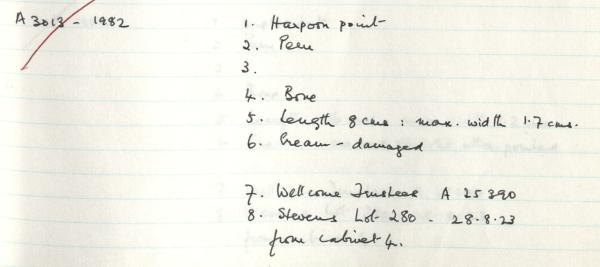 A 3013 - 1982
1. Harpoon point
2. Peru
3.
4. Bone
5. Length 8 cms : max. width 1.7 cms.
6. Cream - damaged
7. Wellcome Trustees A 25390
8. Stevens Lot 280 - 28.8.23
from cabinet 4.